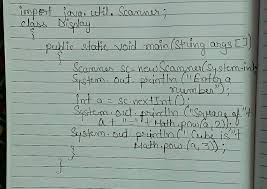 import java.util.Scanner;
class Display
{
public static void main(String args[])
{
Scanner sc=new Scanner(System.in);
System.out.println("Enter a
number");
Int a = sc.nextInt();
System.out.println("Square of "+
a + "=" + Math.pow(a,2));
System.out.println("Cube is"+
Math.pow(a,3));
}
}